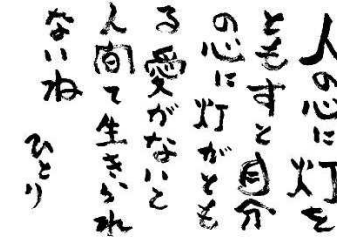 人の心に灯を
ともすと自分
の心に灯がとも
る愛がないと
人間て生きられ
ないね
ひとり